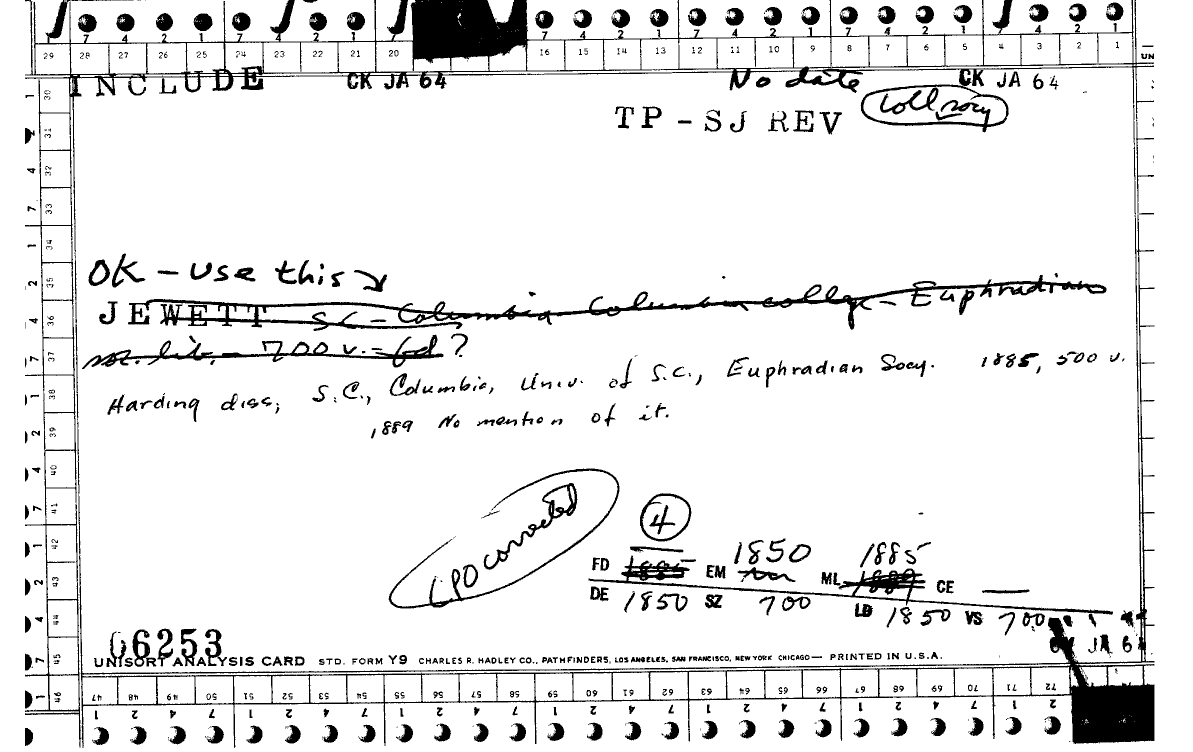 7 4 2 1 7 4 2 1 7 7 4 2 1 7 4 2 1 7 4 2 1 7 4 2 1
29 28 27 26 25 24 23 22 21 20 16 15 14 13 12 11 10 9 8 7 6 5 4 3 2 1 UN
INCLUDE CK JA 64 No date CK JA 64
TP - SJ REV Coll. socy
OK - Use this
JEWETT SC - Columbia Columbia college - Euphradian
soc. lib. - 700 v. - fd?
Harding diss; S.C., Columbia, Univ. of S.C., Euphradian Socy. 1885, 500 v.
1889 No mention of it.
LPO corrected
4
1850 1885
FD 1885 EM ML 1889 CE —
DE 1850 SZ 700 LD 1850 VS 700
CK JA 64
06253
UNISORT ANALYSIS CARD STD. FORM Y9 CHARLES R. HADLEY CO., PATHFINDERS, LOS ANGELES, SAN FRANCISCO, NEW YORK CHICAGO — PRINTED IN U.S.A.
30
31
32
33
34
35
36
37
38
39
40
41
42
43
44
45
46
47 48 49 50 51 52 53 54 55 56 57 58 59 60 61 62 63 64 65 66 67 68 69 70 71 72
1 2 4 7 1 2 4 7 1 2 4 7 1 2 4 7 1 2 4 7 1 2 4 7 1 2